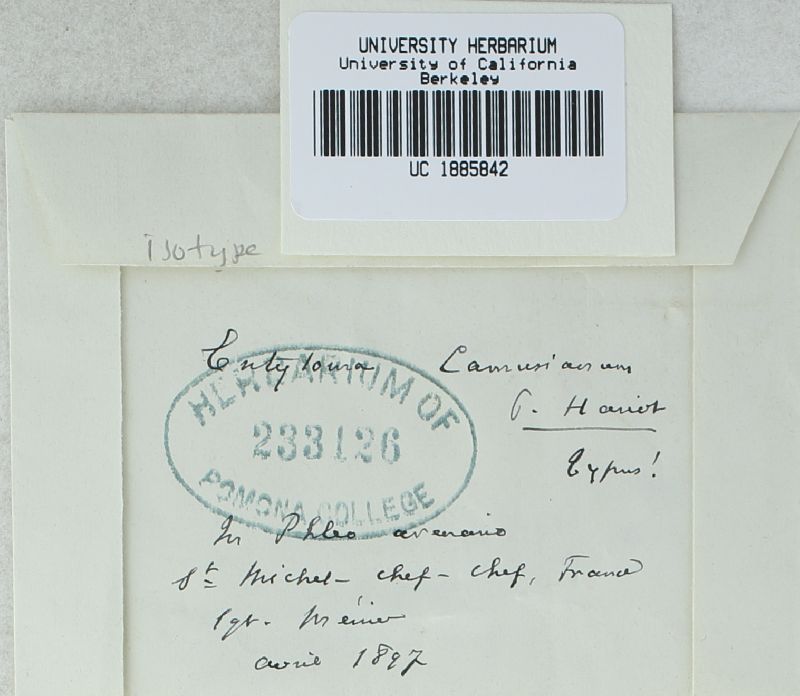 UNIVERSITY HERBARIUM
University of California
Berkeley
UC 1885842
isotype
Entyloma Camusianum
P. Hariot
Typus!
HERBARIUM OF
233126
POMONA COLLEGE
In Phleo arenario
St Michel-chef-chef, France
lgt. Ménier
avril 1897